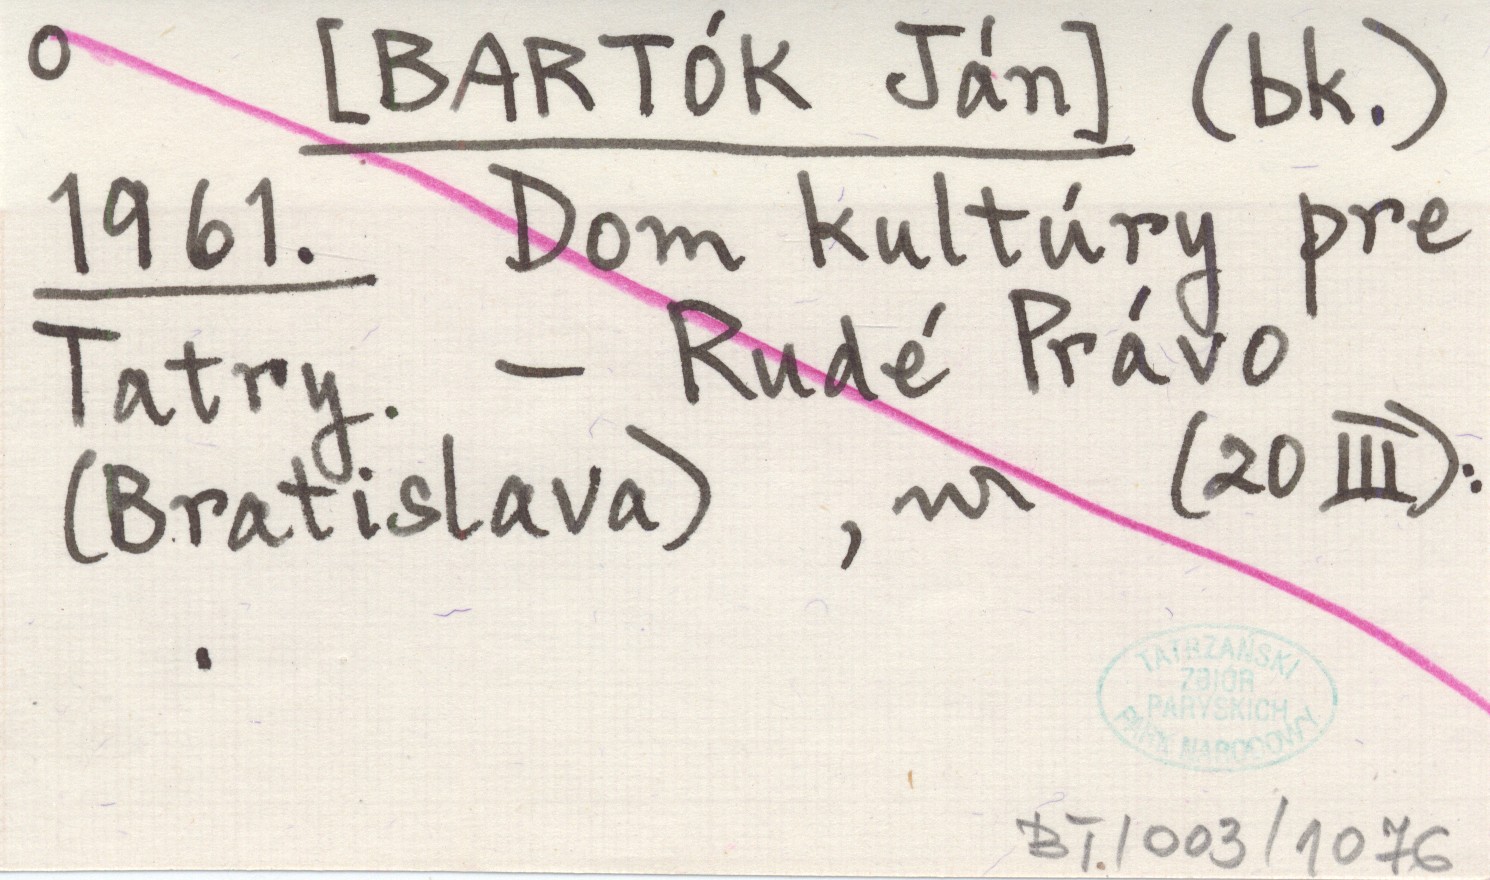 o [BARTÓK Ján] (bk.)
1961. Dom kultúry pre
Tatry. – Rudé Právo
(Bratislava) , nr (20 III):
.
TATRZAŃSKI
ZBIÓR
PARYSKICH
PARK NARODOWY
BT./003/1076